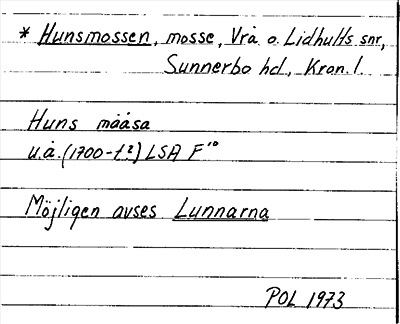 * Hunsmossen, mosse, Vrå o. Lidhults snr,
Sunnerbo hd, Kron. l.
Huns måása
u.å. (1700-t?) LSA F¹⁰
Möjligen avses Lunnarna
POL 1973